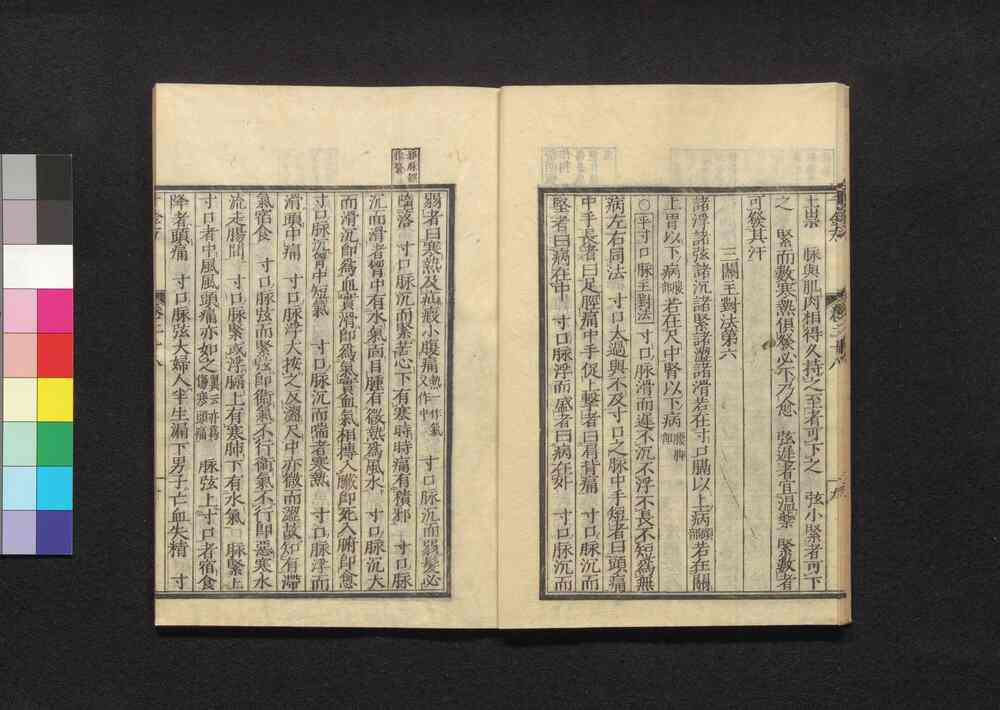 土祟　脉與肌肉相得久持之至者可下之　弦小緊者可下
之　緊而數寒熱俱發必下乃愈　弦遲者宜温藥　緊數者
可發其汗
三關主對法第六
諸浮諸弦諸沉諸緊諸澀諸滑若在寸口膈以上病頭部若在關
上胃以下病腹部若在尺中腎以下病腰脚部
○平寸口脉主對法　寸口脉滑而遲不沉不浮不長不短爲無
病左右同法　寸口太過與不及寸口之脉中手短者曰頭痛
中手長者曰足脛痛中手促上擊者曰肩背痛　寸口脉沉而
堅者曰病在中　寸口脉浮而盛者曰病在外　寸口脉沉而
邪脉經作聚
弱者曰寒熱及疝瘕小腹痛熱一作氣又作中　寸口脉沉而弱髮必
墮落　寸口脉沉而緊苦心下有寒時時痛有積邪　寸口脉
沉而滑者胷中有水氣面目腫有微熱爲風水　寸口脉沉大
而滑沉即爲血實滑即爲氣實血氣相摶入臟即死入腑即愈
寸口脉沉胷中短氣　寸口脉沉而喘者寒熱　寸口脉浮而
滑頭中痛　寸口脉浮大按之反澀尺中亦微而澀故知有滯
氣宿食　寸口脉弦而緊弦即衞氣不行衞氣不行即惡寒水
流走腸間　寸口脉緊或浮膈上有寒肺下有水氣　脉緊上
寸口者中風風頭痛亦如之亦爲傷寒頭痛　脉弦上寸口者宿食
降者頭痛　寸口脉弦大婦人半生漏下男子亡血失精　寸